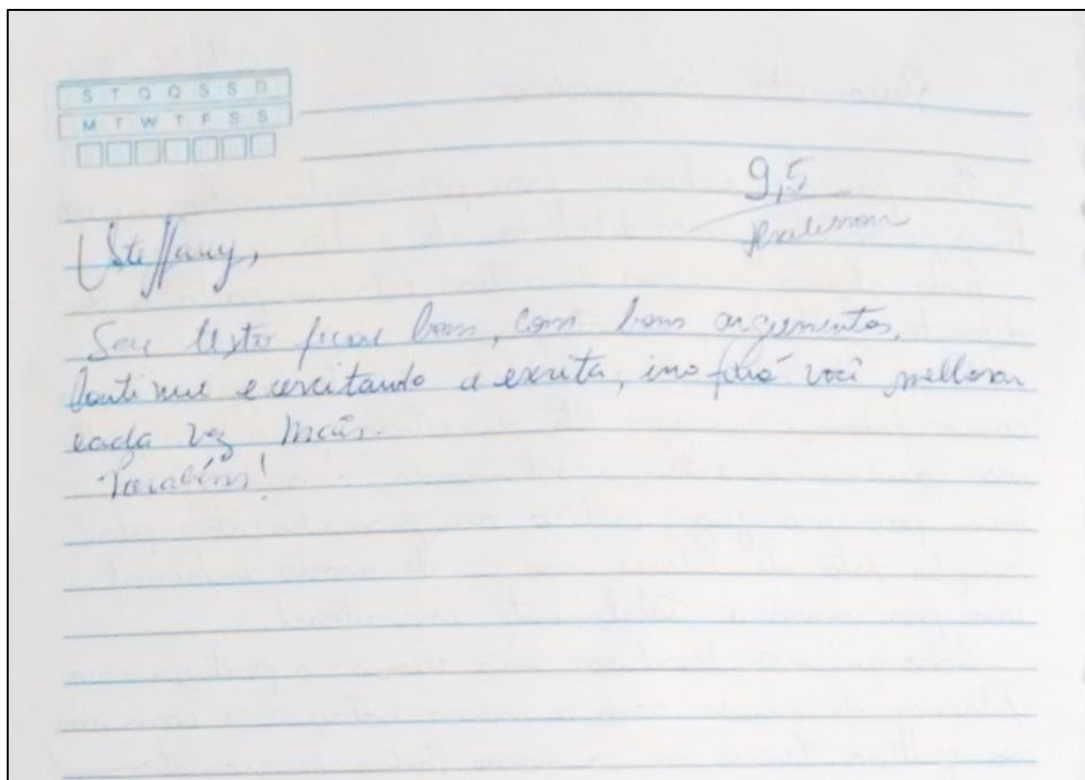 S T Q Q S S D
M T W T F S S
9,5
Steffany,
Seu texto ficou bom, com bons argumentos.
Continue exercitando a escrita, isso fará você melhorar
cada vez mais.
Parabéns!